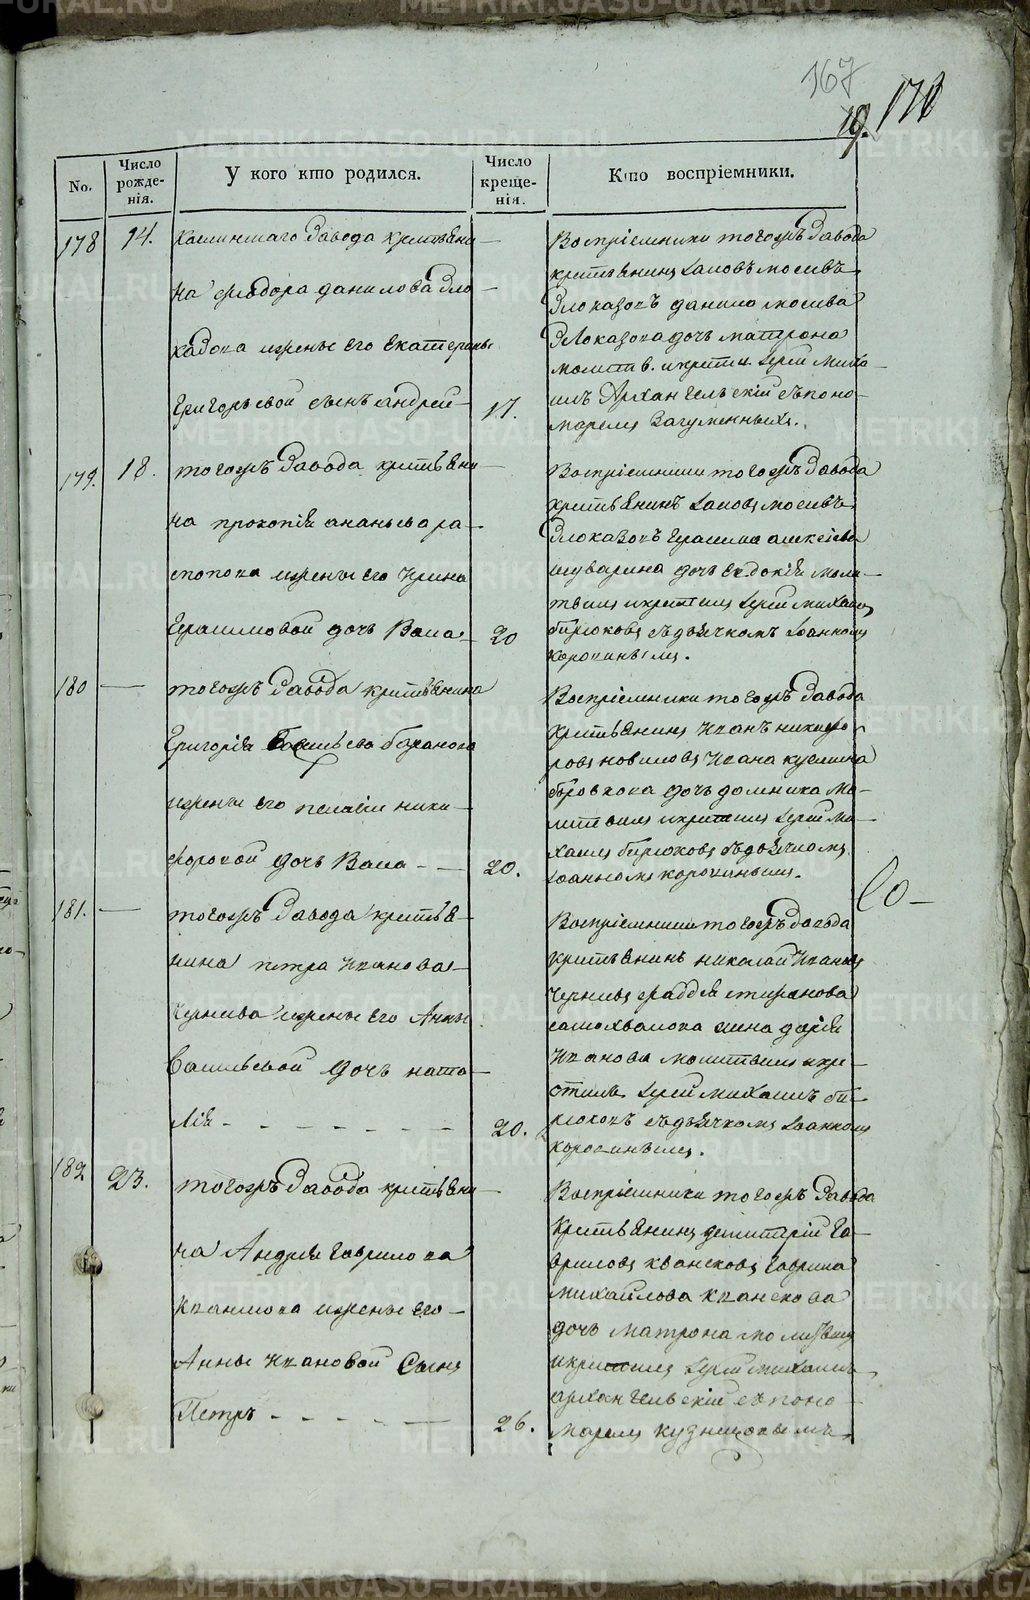 167
19. 170
No.
Число рожденiя.
У кого кто родился.
Число крещенiя.
Кто воспрiемники.
178 14. Каслинскаго завода крестьяни-
на Ѳеодора данилова Зло-
казова жены его Екатерины
Григорьевой сынъ андрей 17.
Воспрiемники тогожъ завода
крестьянинъ Iаковъ мосѣевъ
Злоказовъ данила мосѣева
Злоказова дочь матрона
молитв. и крести. Iерей миха-
илъ Архангельскiй съ поно-
маремъ
179. 18. тогожъ завода крестьяни-
на прокопiя ананьева ра-
спопова жены его Ирины
Герасимовой дочь Васа 20
Воспрiемники тогожъ завода
крестьянинъ Iаковъ мосѣевъ
Злоказовъ герасима алексѣева
шуварина дочь евдокiя моли-
твилъ и крестилъ Iерей михаилъ
бирюковъ съ дьячкомъ Iоанномъ
коровинымъ.
180 — тогожъ завода крестьянина
Григорiя Васильева баранова
жены его пелагiи ники-
форовой дочь Васа - — 20.
Воспрiемники тогожъ завода
крестьянинъ Иванъ никифо-
ровъ новиковъ Ивана кузмина
боровкова дочь домника мо-
литвилъ и крестилъ Iерей ми-
хаилъ бирюковъ съ дьячкомъ
Iоанномъ коровинымъ.
181. — тогожъ завода крестья-
нина петра Иванова
жены его Анны
Васильевой дочь ната-
лiя - - - - - - — 20.
Воспрiемники тогожъ завода
крестьянинъ николай Ивановъ
самохвалова жена дарiя
Иванова молитвилъ и кре-
стилъ Iерей михаилъ би-
рюковъ съ дьячкомъ Iоанномъ
коровинымъ.
182 23. тогожъ завода крестьяни-
на Андрея гаврилова
Кванскова жены его
Анны Ивановой сынъ
Петръ - - - - - — 26.
Воспрiемники тогожъ завода
крестьянинъ димитрiй га-
вриловъ квансковъ гаврила
михайлова кванскова
дочь матрона молитвилъ
и крестилъ Iерей михаилъ
архангельскiй съ поно-
маремъ кузнецовымъ.
METRIKI.GASO-URAL.RU